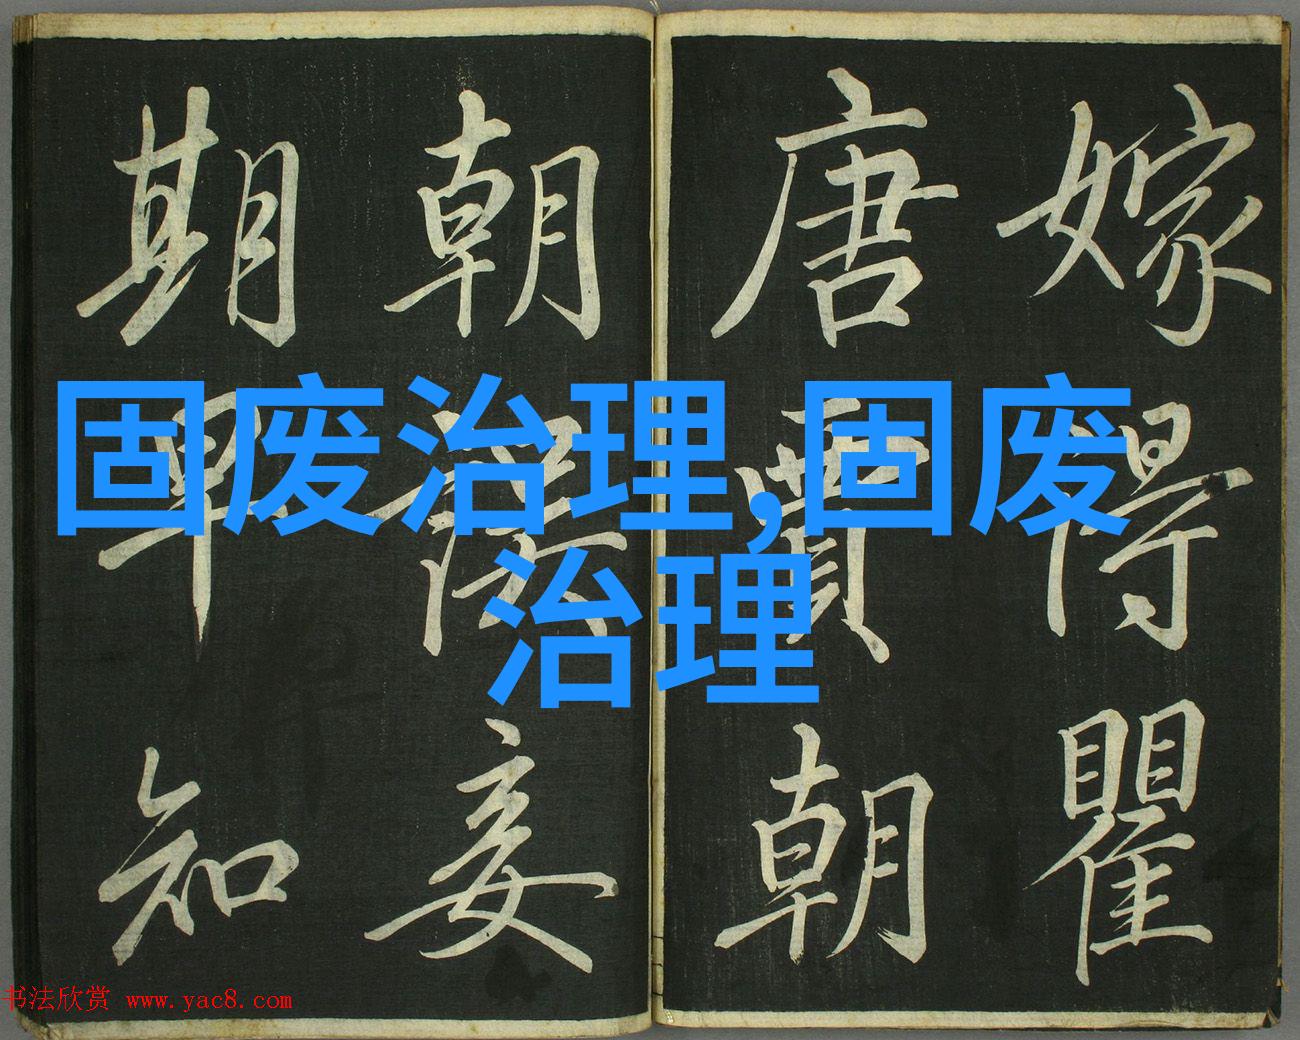 嫁得瞿
唐賈朝
朝誤妾
期早知
固废治理,固废
治理
书法欣赏 www.yac8.com